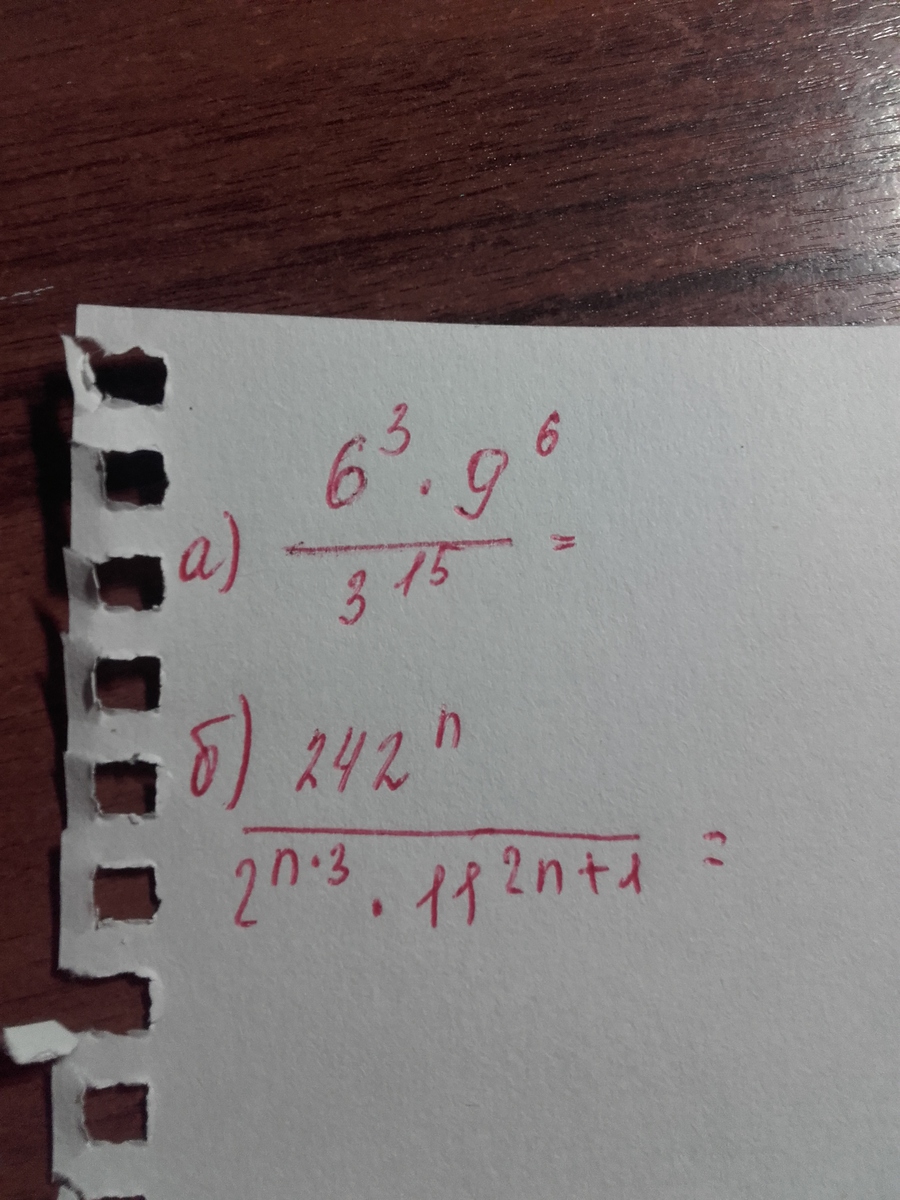 а) 6³ · 9⁶ / 3¹⁵ =
б) 242ⁿ / 2ⁿ·³ · 11²ⁿ⁺¹ =